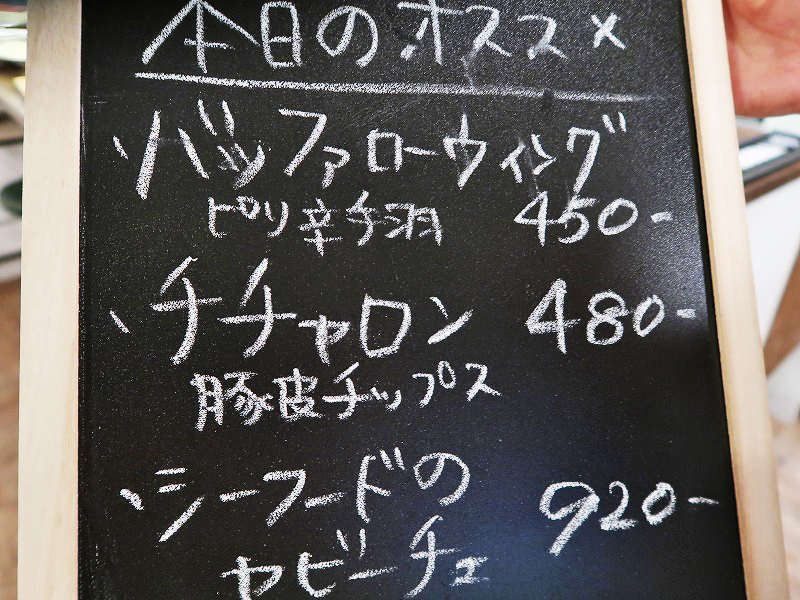 本日のオススメ
、バッファローウィング
ピリ辛手羽 450-
、チチャロン 480-
豚皮チップス
、シーフードの 920-
セビーチェ